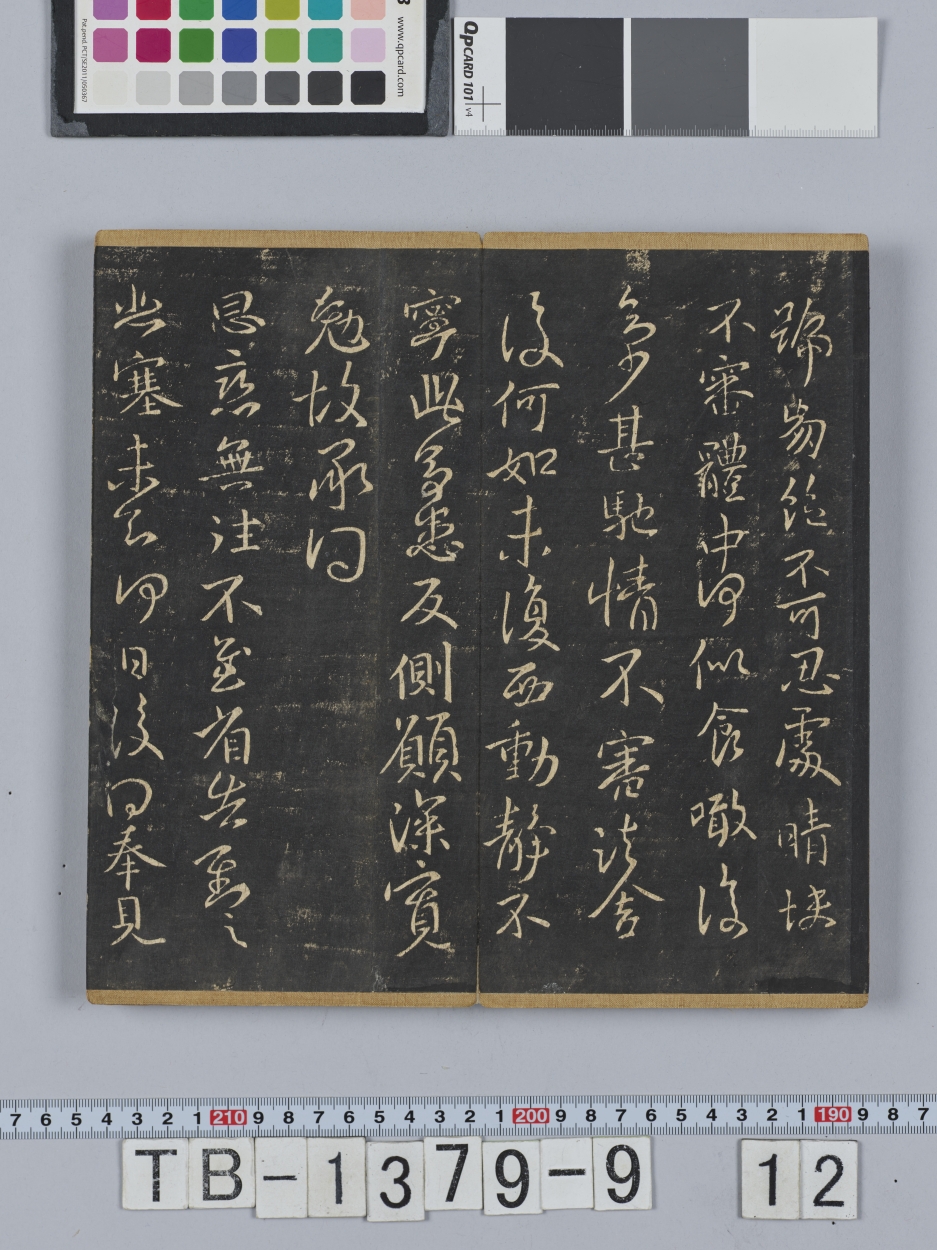 號絕不可忍處晴快
不審體中何似食噉復
多少甚馳情不審諸舍
復何如未復西動靜不
寧此多患反側願深寬
勉故承問
思戀無往不至省告對之
悲塞未知何日復得奉見
www.qpcard.com
Pat.pend. PCT/SE2011/050367
QPCARD 101 v4
7 6 5 4 3 2 1 210 9 8 7 6 5 4 3 2 1 200 9 8 7 6 5 4 3 2 1 190 9 8 7
TB-1379-9 12